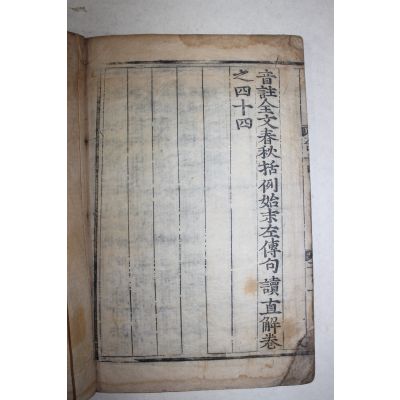 音註全文春秋括例始末左傳句讀直解卷
之四十四